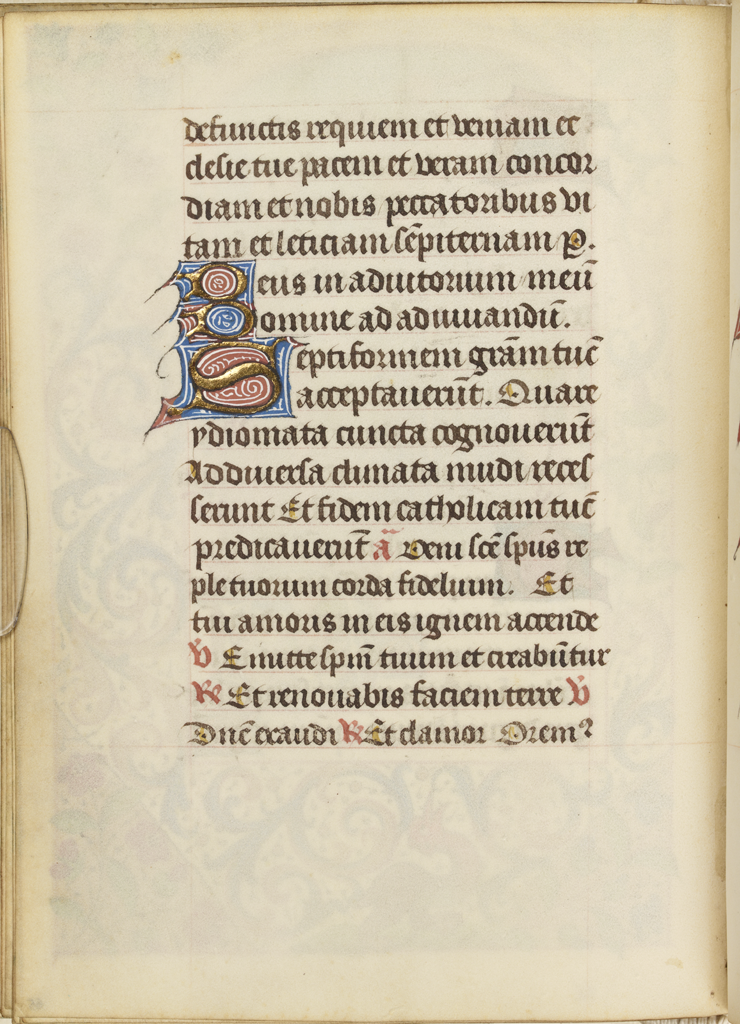 defunctis requiem et veniam ec
clesie tue pacem et veram concor
diam et nobis peccatoribus vi
tam et leticiam sẽpiternam P.
Deus in adiutorium meũ
Domine ad adiuuandũ.
Septiformem grãm tuẽ
acceptauerũt. Quare
ydiomata cuncta cognouerũt
Ad diuersa climata mũdi reces
serunt Et fidem catholicam tuẽ
predicauerũt ã Veni scẽ spũs re
ple tuorum corda fidelium. Et
tui amoris in eis ignem accende
℣ Emitte spm̃ tuum et creabũtur
℟ Et renouabis faciem terre ℣
Dnẽ exaudi ℟ Et clamor Orem⁹